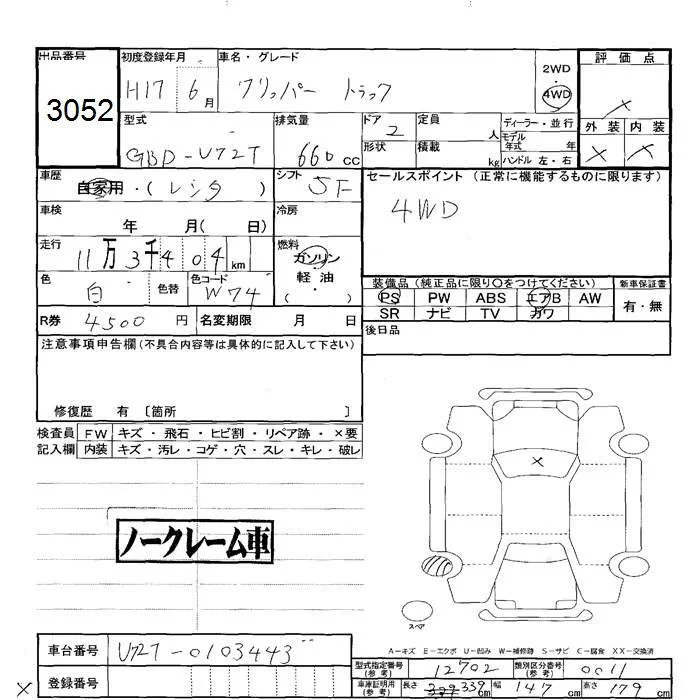 出品番号
3052
初度登録年月
H17 6月
車名・グレード
クリッパー トラック
2WD
4WD
評価点
×
外装 内装
× ×
型式
GBD-U72T
排気量
660cc
ドア
2
形状
定員
人
積載
kg
ディーラー・並行
モデル
年式 年
ハンドル 左・右
車歴
自家用・(レンタ)
シフト
5F
セールスポイント (正常に機能するものに限ります)
4WD
車検
年 月( 日)
冷房
走行
11万3千404km
燃料
ガソリン
軽油
( )
色
白
色替
色コード
W74
装備品(純正品に限り〇をつけてください)
PS PW ABS エアB AW
SR ナビ TV カワ
新車保証書
有・無
R券
4500円
名変期限 月 日
後日品
注意事項申告欄(不具合内容等は具体的に記入して下さい)
修復歴 有 〔箇所 〕
検査員 FW キズ・飛石・ヒビ割・リペア跡・×要
記入欄 内装 キズ・汚レ・コゲ・穴・スレ・キレ・破レ
×
ノークレーム車
スペア
A-キズ E-エクボ U-凹み W-補修跡 S-サビ C-腐食 XX-交換済
車台番号
U72T-0103443
登録番号
×
型式指定番号
(参考)
12702
類別区分番号
(参考)
0011
車庫証明用
(参考)
長さ 339cm 幅 147cm 高さ 179cm